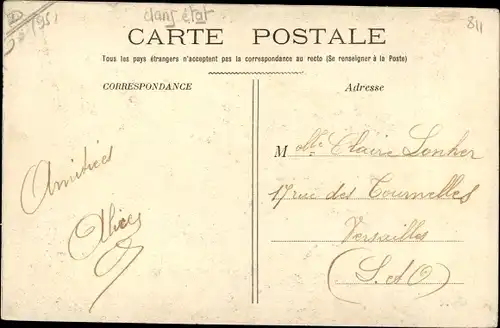 dans état
811
CARTE POSTALE
Tous les pays étrangers n'acceptent pas la correspondance au recto (Se renseigner à la Poste)
CORRESPONDANCE
Adresse
Amitiés
Alice
Melle Claire Lonher
17 rue des Tournelles
Versailles
(S. et O)